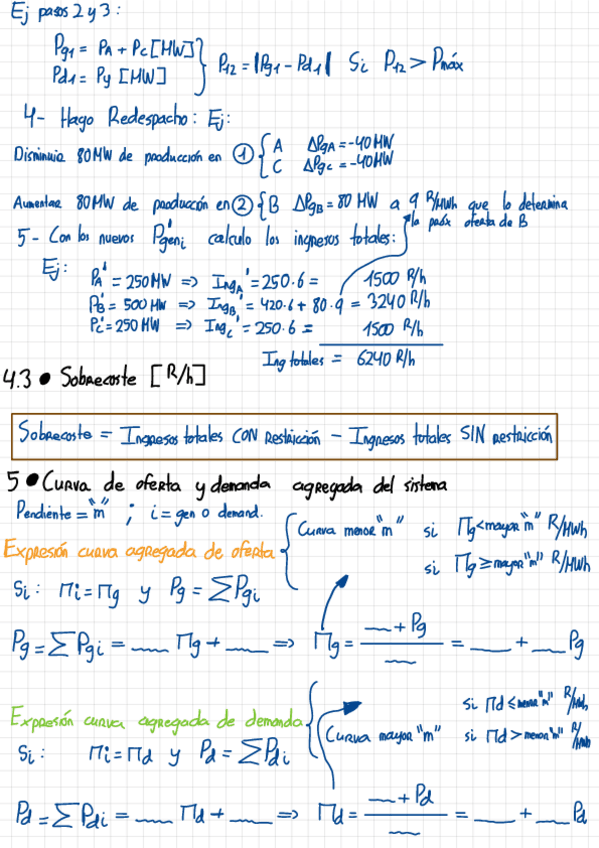 Ej pasos 2 y 3:
Pg1 = PA + PC [MW]
Pd1 = Py [MW]
P12 = |Pg1 - Pd1| Si P12 > Pmáx
4- Hago Redespacho: Ej:
Disminuir 80MW de producción en ① { A ΔPgA = -40 MW
C ΔPgC = -40MW
Aumentar 80MW de producción en ② { B ΔPgB = 80 MW a 9 R/MWh que lo determina
la próx oferta de B
5- Con los nuevos Pgeni' calculo los ingresos totales:
Ej:
PA' = 250MW => IngA' = 250·6 = 1500 R/h
PB' = 500 MW => IngB' = 420·6 + 80·9 = 3240 R/h
PC' = 250 MW => IngC' = 250·6 = 1500 R/h
Ing totales = 6240 R/h
4.3 • Sobrecoste [R/h]
Sobrecoste = Ingresos totales CON Restricción - Ingresos totales SIN restricción
5 • Curva de oferta y demanda agregada del sistema
Pendiente = "m" ; i = gen o demand.
Curva menor "m" si Πg < mayor "n" R/MWh
Expresión curva agregada de oferta
si Πg ≥ mayor "n" R/MWh
Si: Πi = Πg y Pg = ∑Pgi
Pg = ∑Pgi = ___ Πg + ___ => Πg = (___ + Pg) / ___ = ___ + ___ Pg
si Πd ≤ menor "n" R/MWh
Expresión curva agregada de demanda
Curva mayor "m" si Πd > menor "n" R/MWh
Si: Πi = Πd y Pd = ∑Pdi
Pd = ∑Pdi = ___ Πd + ___ => Πd = (___ + Pd) / ___ = ___ + ___ Pd